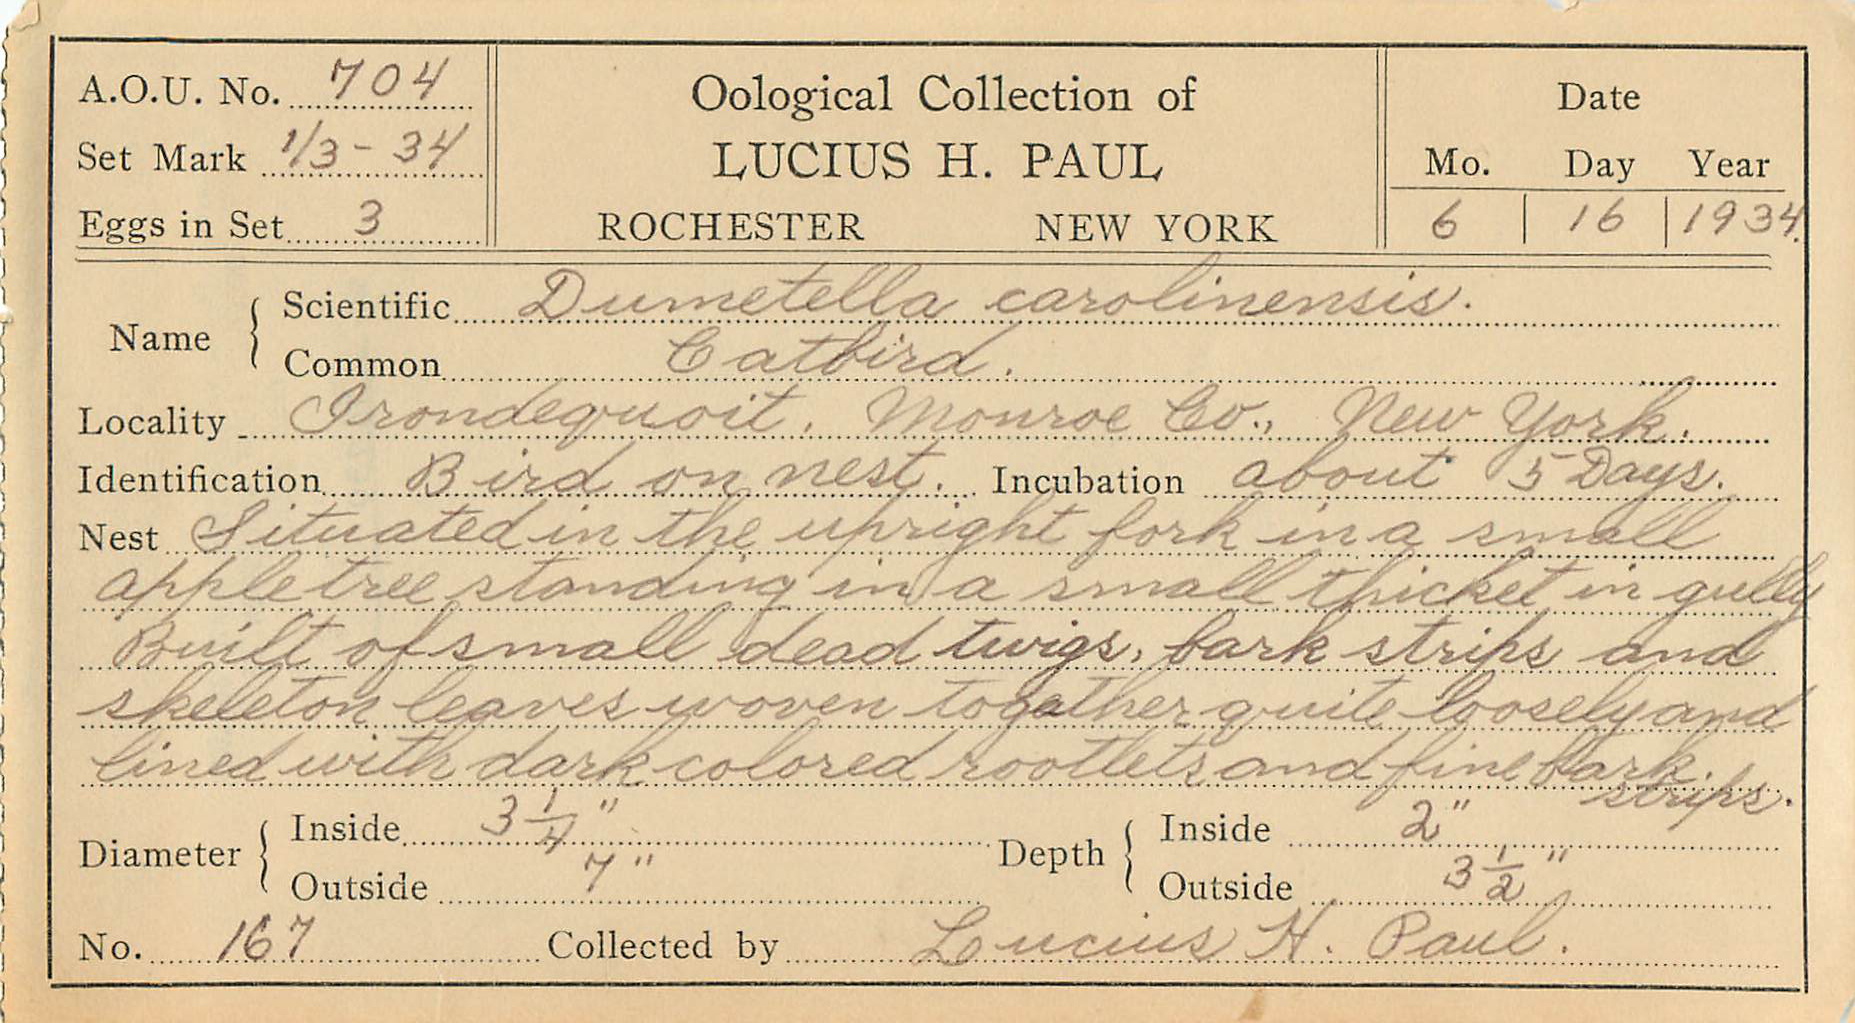 A.O.U. No. 704
Set Mark 1/3 - 34
Eggs in Set 3
Oological Collection of
LUCIUS H. PAUL
ROCHESTER NEW YORK
Date
Mo. Day Year
6 | 16 | 1934.
Name { Scientific Dumetella carolinensis.
Common Catbird.
Locality Irondequoit, Monroe Co., New York.
Identification Bird on nest. Incubation about 5 Days.
Nest Situated in the upright fork in a small
apple tree standing in a small thicket in gully
Built of small dead twigs, bark strips and
skeleton leaves woven together quite loosely and
lined with dark colored rootlets and fine bark.
strips.
Diameter { Inside 3 1/4" Depth { Inside 2"
Outside 7" Outside 3 1/2"
No. 167 Collected by Lucius H. Paul.